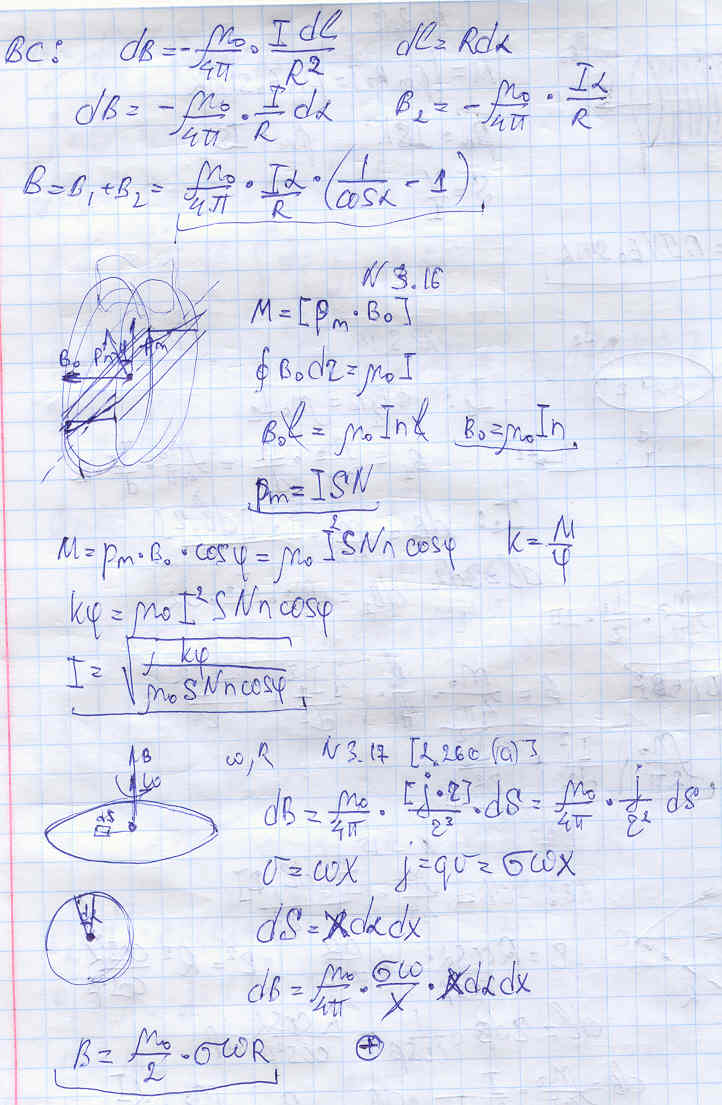 BC: dB = -μ₀/4π · I dl/R² dl = Rdα
dB = -μ₀/4π · I/R dα B₂ = -μ₀/4π · Iα/R
B = B₁ + B₂ = μ₀/4π · Iα/R · (1/cosα - 1).
N 3.16
M = [pₘ · B₀]
B₀ pₘ pₘ
∮ B₀dr = μ₀I
B₀l = μ₀Inl B₀ = μ₀In.
pₘ = ISN
M = pₘ · B₀ · cosφ = μ₀I²SNn cosφ k = M/φ
kφ = μ₀I²SNn cosφ
I = √(kφ/μ₀SNn cosφ).
B ω dS
ω, R N 3.17 [2.260 (a)]
dB = μ₀/4π · [j·r]/r³ · dS = μ₀/4π · j/r² dS
v = ωx j = qv = σωx
dα
dS = xdαdx
dB = μ₀/4π · σω/x · xdαdx
B = μ₀/2 · σωR +